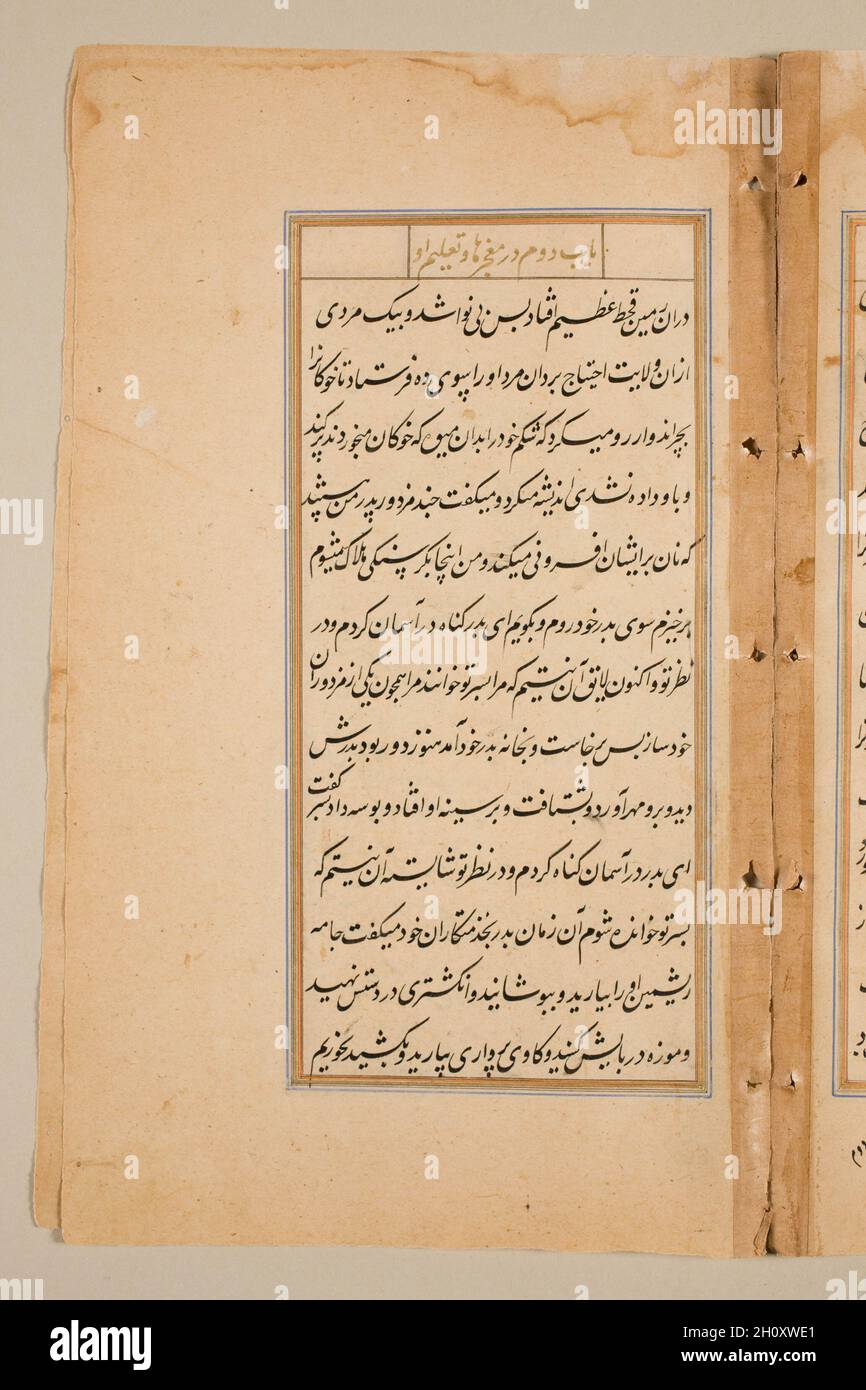 باب دوم در معجزها و تعلیم او
دران زمین قحط عظیم افتاد پس بی نوا شد و بیک مردی
ازان ولایت احتیاج برد ان مرد او را بسوی ده فرستاد تا خوکانرا
بچراند و آرزو میکرد که شکم خود را بدان میوه که خوکان میخوردند پر کند
و باو داده نشدی اندیشه میکرد و میکفت چند مزدور پدر من هستند
که نان برایشان افزونی میکند و من اینجا بکرسنکی هلاک میشوم
برخیزم سوی پدر خود روم و بکویم ای پدر کناه در آسمان کردم و در
نظر تو و اکنون لایق آن نیستم که مرا پسر تو خوانند مرا همچون یکی از مزدوران
خود ساز پس برخاست و بخانه پدر خود آمد هنوز دور بود پدرش
دید و برو مهر آورد و بشتافت و بر سینه او افتاد و بوسه داد پسر کفت
ای پدر در آسمان کناه کردم و در نظر تو شایسته آن نیستم که
پسر تو خوانده شوم آن زمان پدر بخدمتکاران خود میکفت جامه
ریشمین او را بیارید و بپوشانید و انکشتری در دستش نهید
و موزه در پایش کنید و کاوی پرواری بیارید و بکشید بخوریم
alamy
a
alamy
Image ID: 2H0XWE1
www.alamy.com